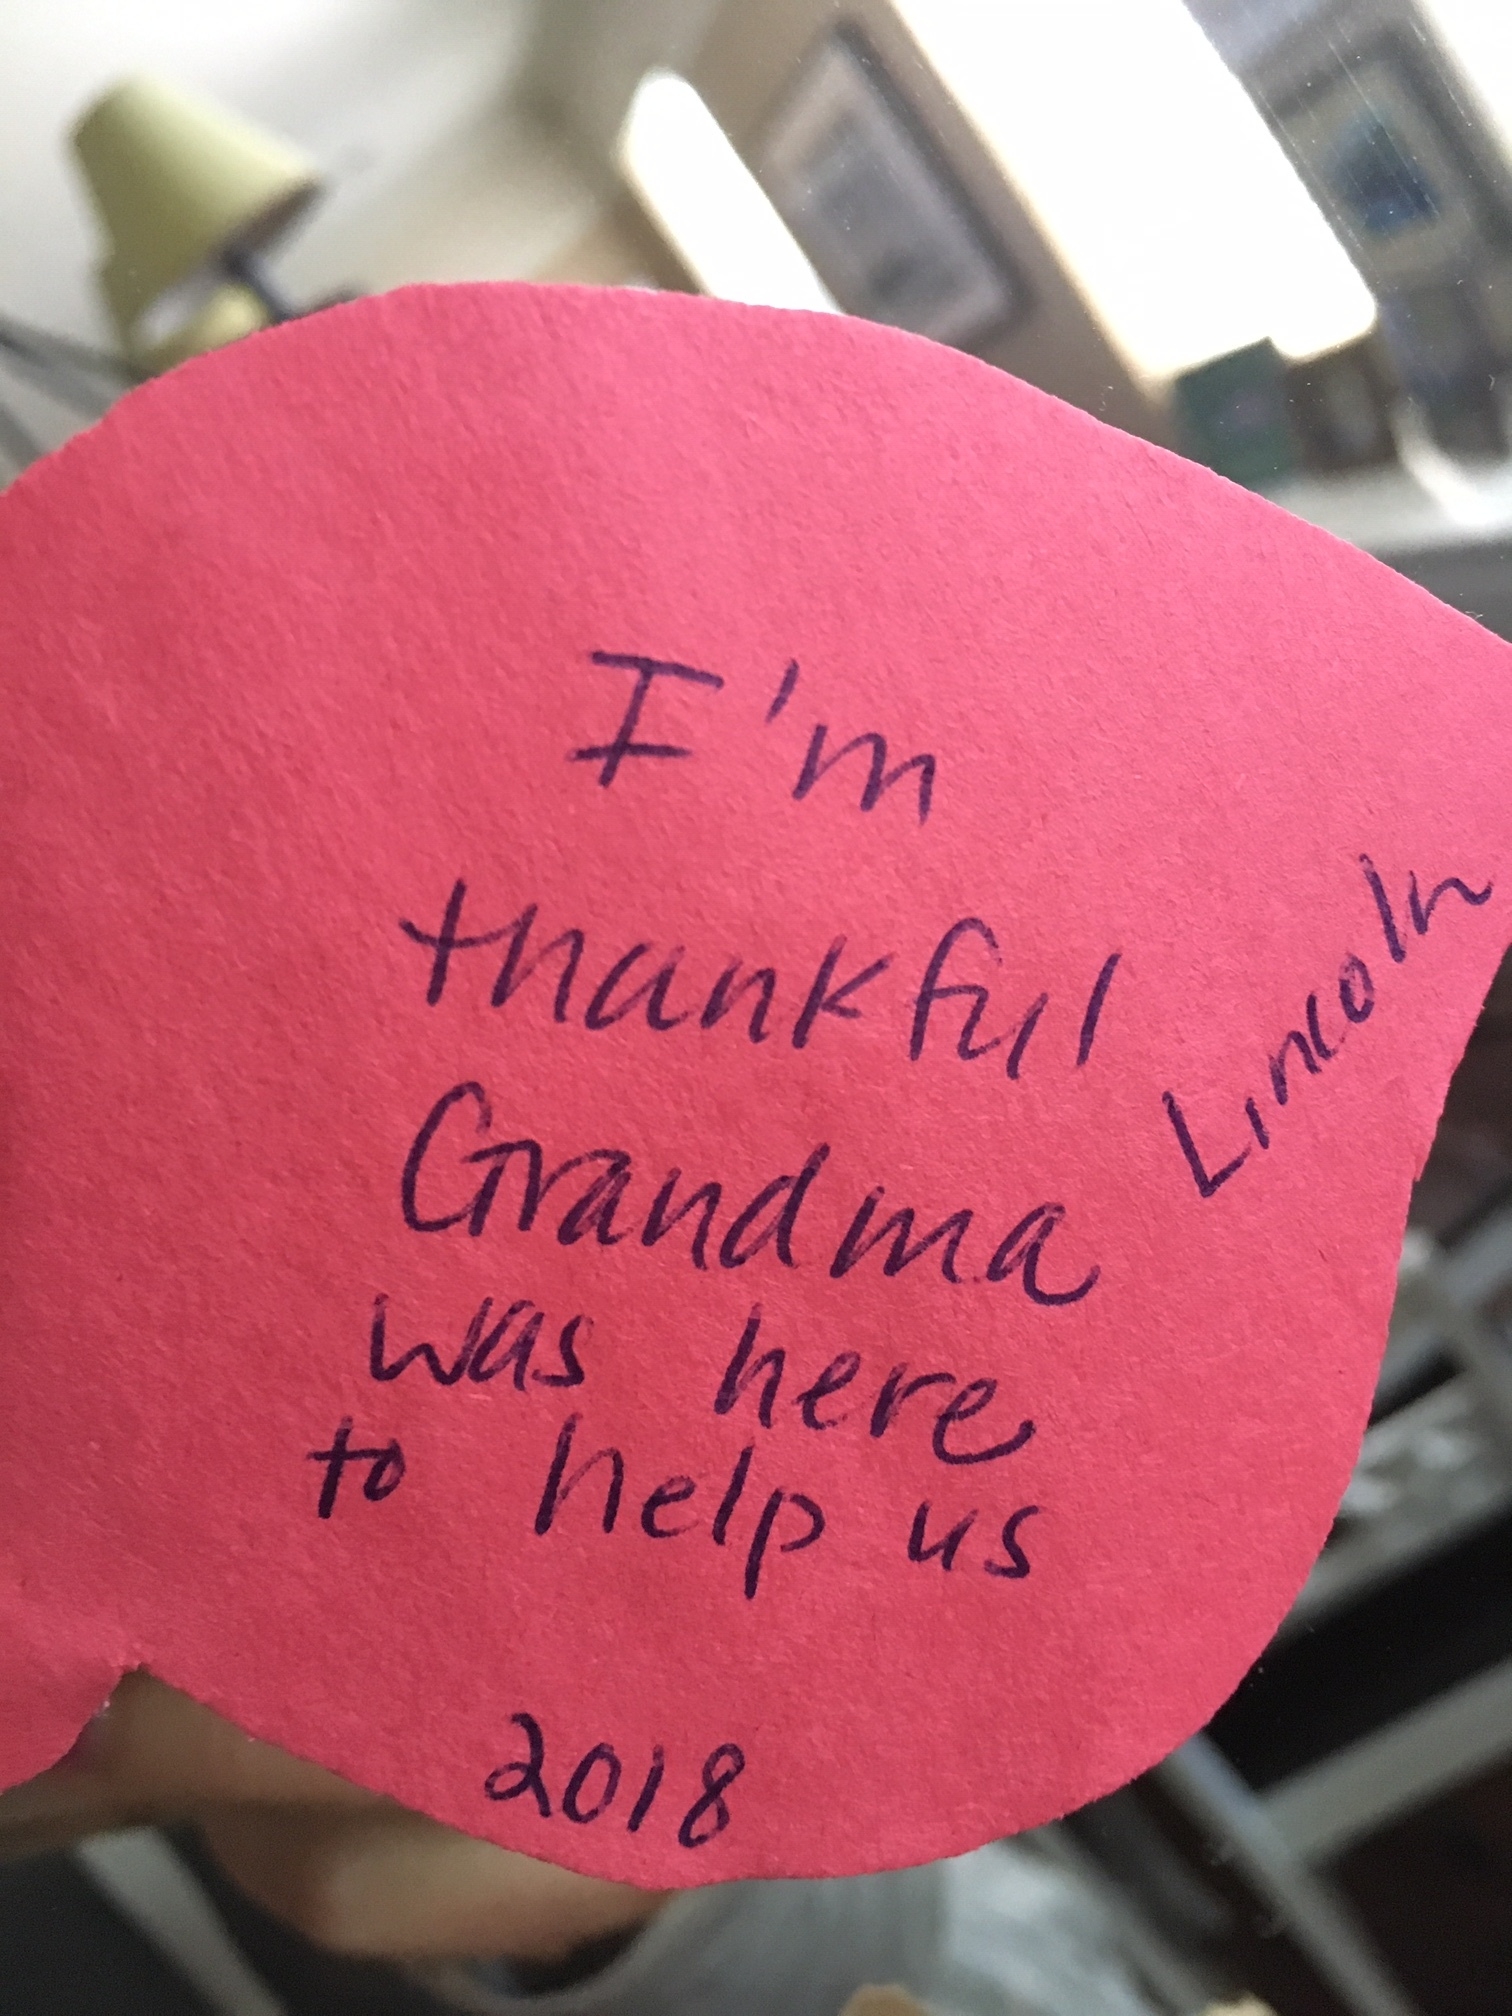 I'm
thankful
Grandma
was here
to help us
Lincoln
2018